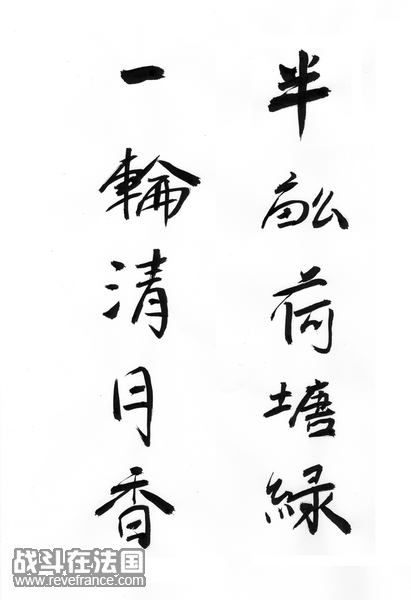 半畝荷塘綠
一輪清月香
战斗在法国
www.revefrance.com